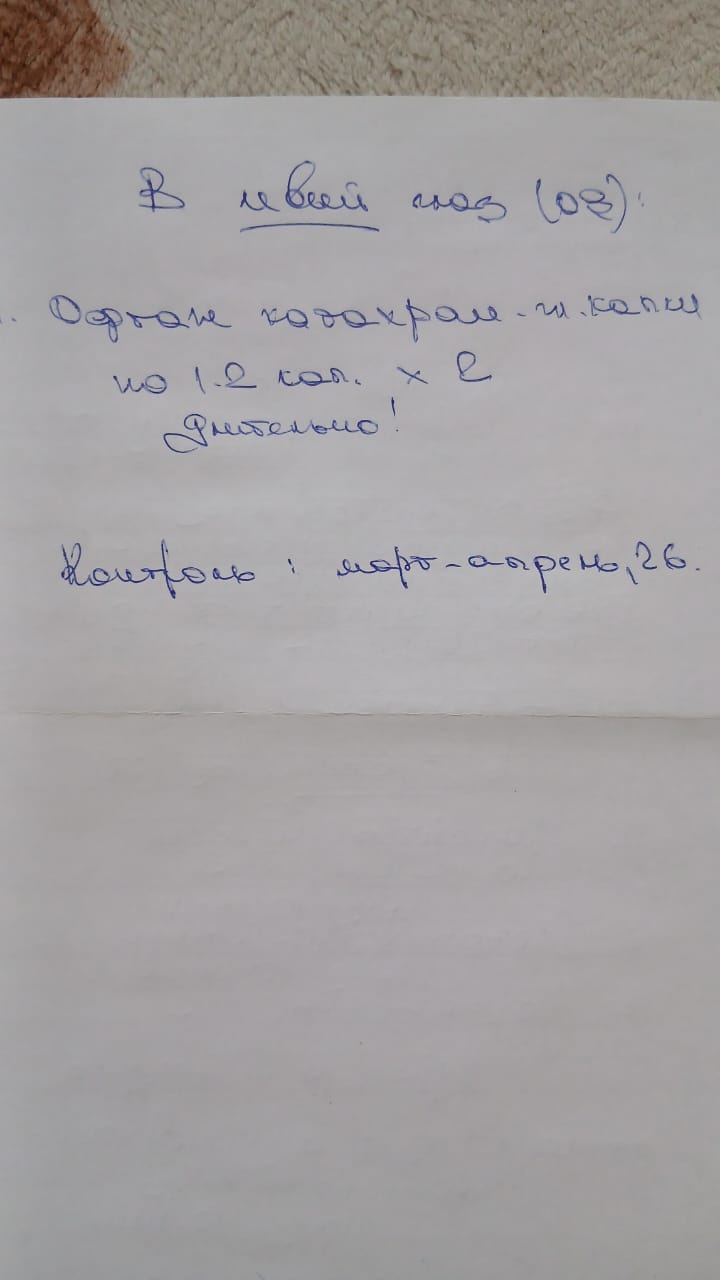 В левый глаз (OS):
. Офтан катахром - гл. капли
по 1-2 кап. x 2
длительно!
Контроль: март-апрель, 26.